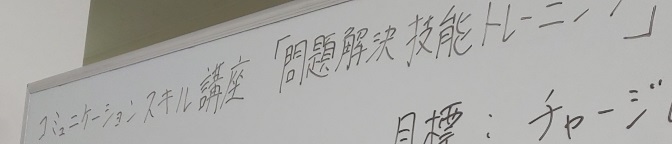 コミュニケーションスキル講座「問題解決技能トレーニング」
目標：チャージ